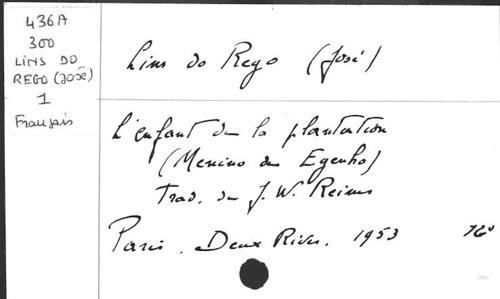 436A
300
LINS DO
REGO (JOSÉ)
1
Français
Lins do Rego (José)
L'enfant de la plantation
(Menino de Egenho)
Trad. de J. W. Reims
Paris. Deux Rives. 1953 16°